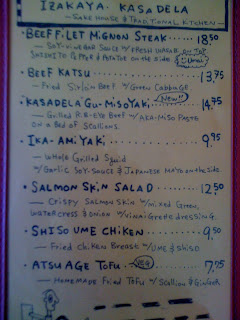 IZAKAYA·KASADELA
~ Sake House & Traditional Kitchen ~
· BEEF FiLET MIGNON STEAK 18.50
~ Soy-Wine Sauce w/Fresh Wasabi on top
Shishito Pepper & Potatoe on the side. Umai
· BEEF KATSU 13.75
~ Fried Sirloin Beef w/Green Cabbage
· KASADELA GU-MISOYAKi New!! 14.75
~ Grilled Rib-Eye Beef w/AKA-Miso Paste
on a Bed of Scallions.
· IKA-AMiYAKi 9.95
~ Whole Grilled Squid
w/Garlic Soy-Sauce & Japanese Mayo on the side
· SALMON SKiN SALAD 12.50
~ Crispy Salmon Skin w/mixed Green,
Watercress & onion w/Vinaigrette dressing.
· SHISO UME CHiKEN 9.50
~ Fried Chiken Breast w/Ume & Shiso
· ATSUAGE TOFU 7.75
~ Homemade Fried Tofu w/Scallion & Ginger